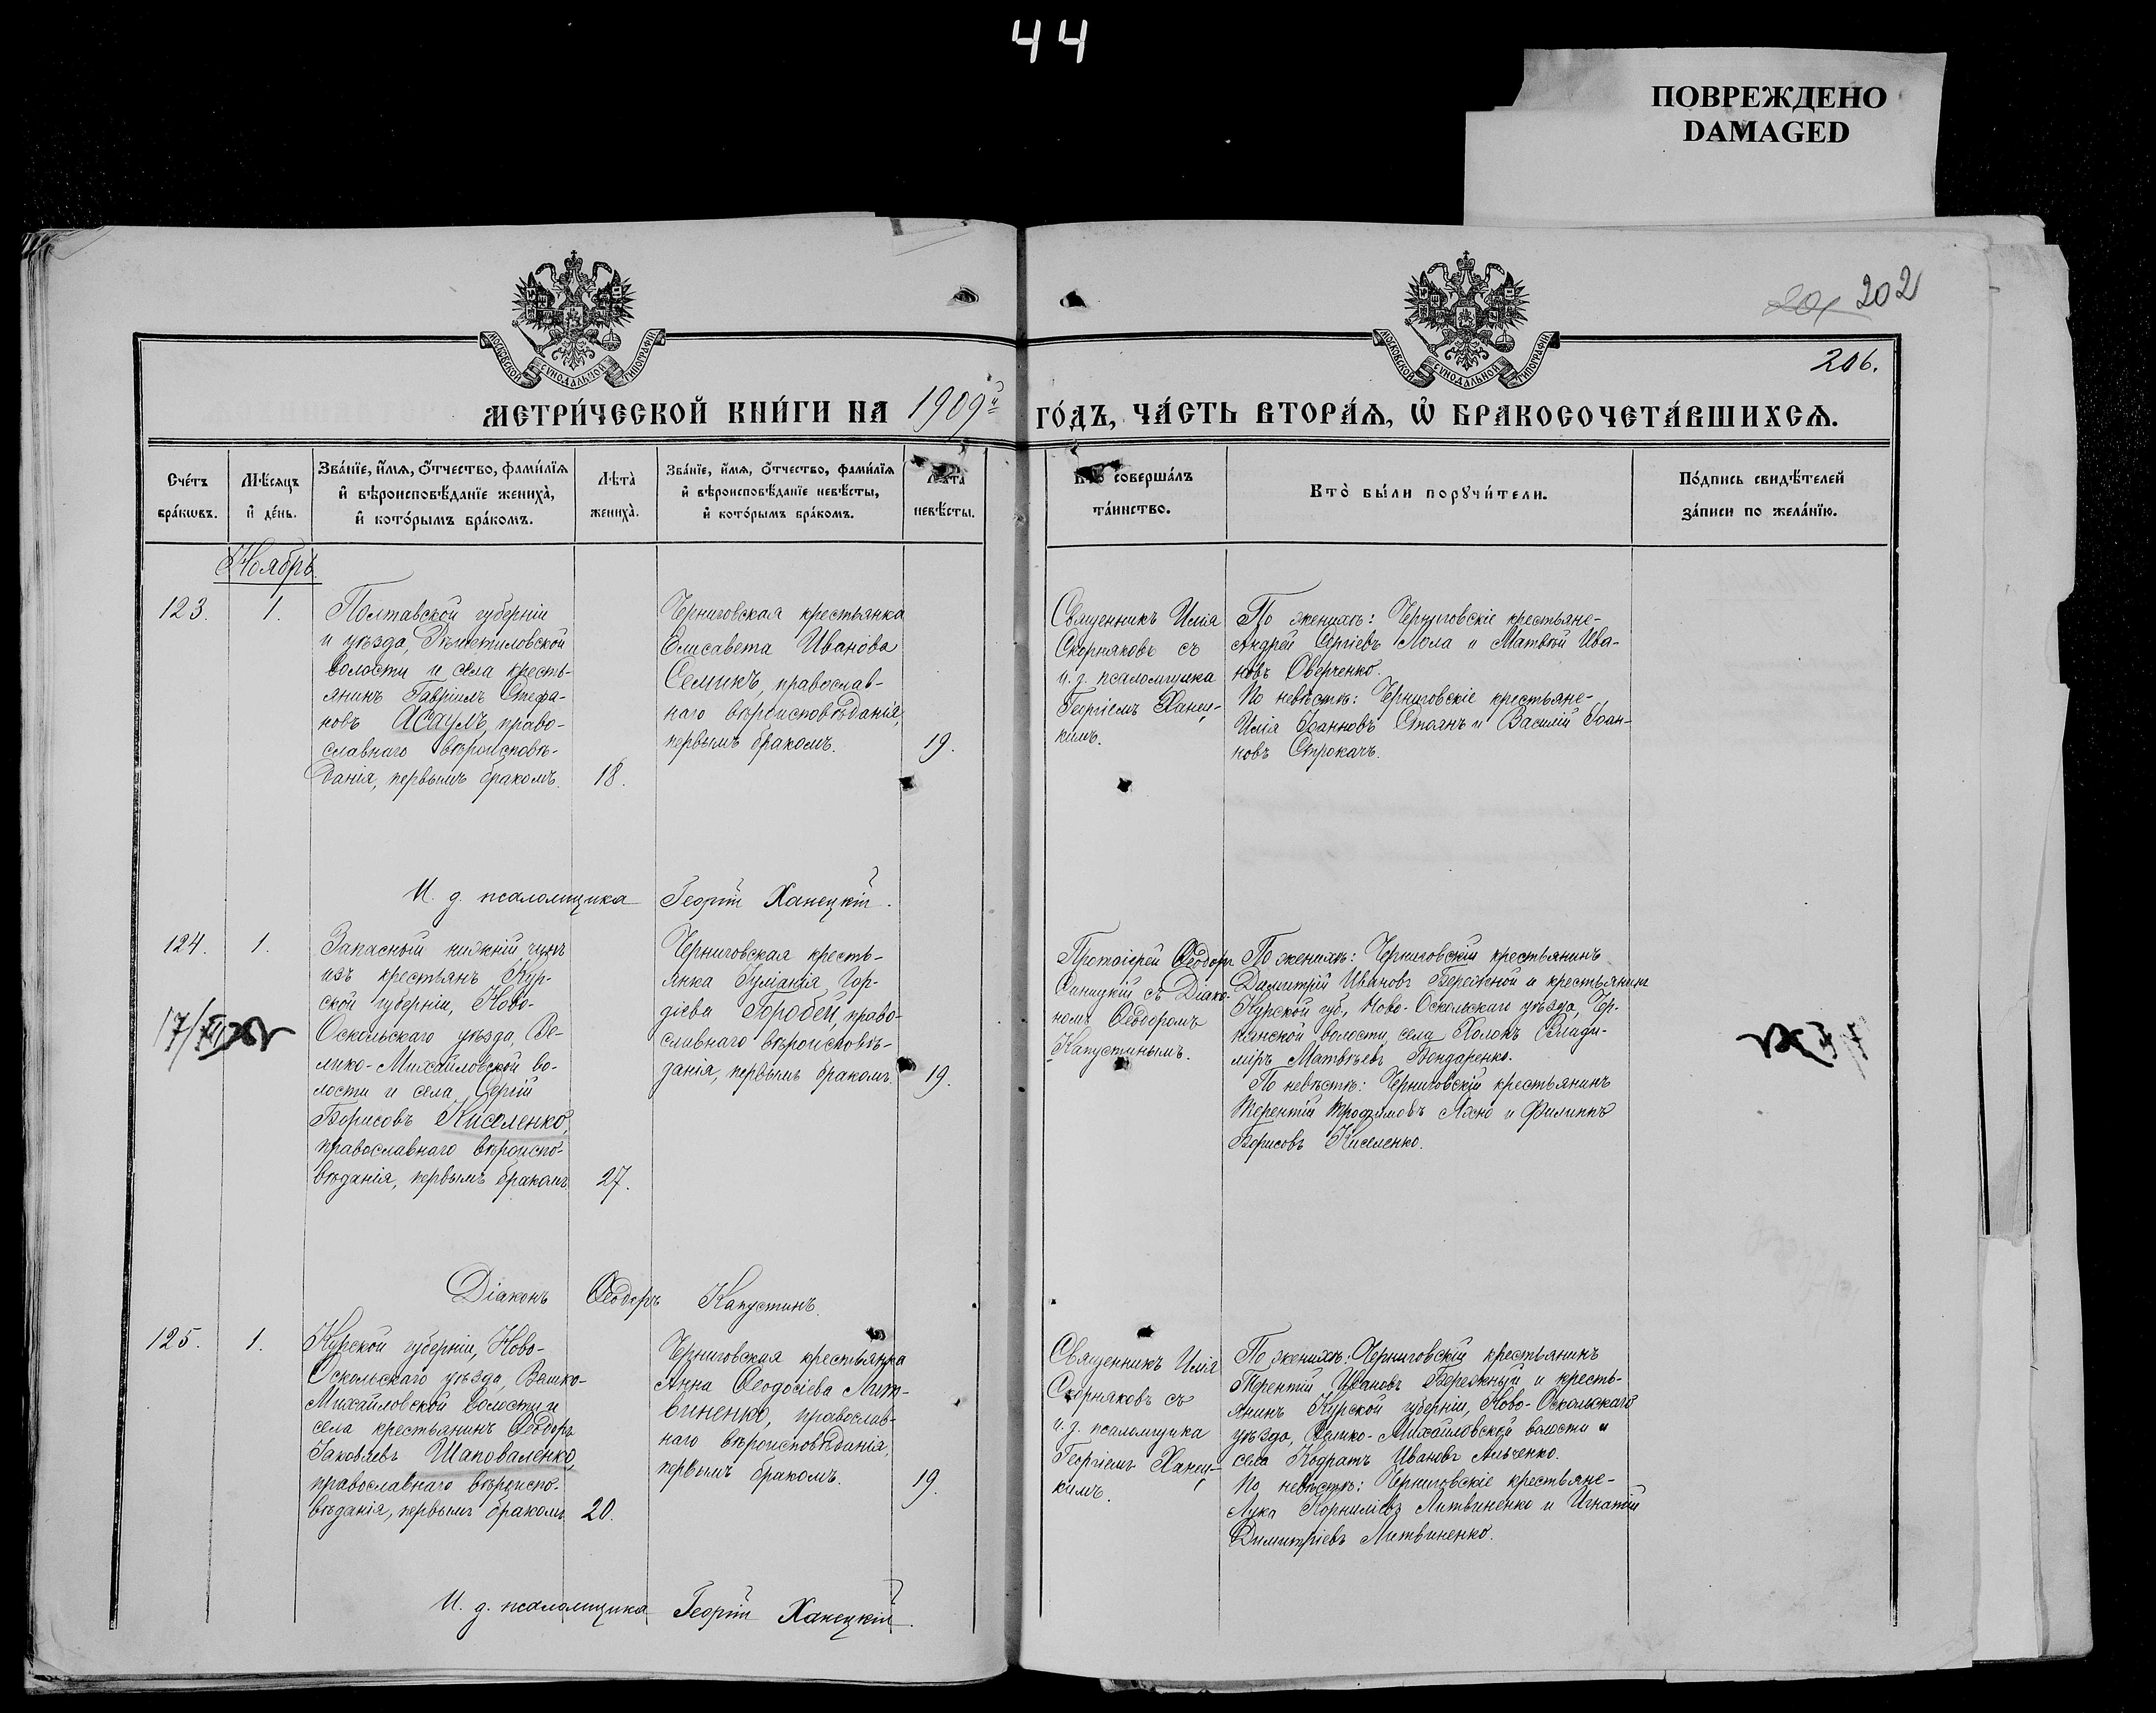 44
ПОВРЕЖДЕНО
DAMAGED
202
206.
МОСКОВСКОЙ СѴНОДАЛЬНОЙ ТИПОГРАФІИ
МОСКОВСКОЙ СѴНОДАЛЬНОЙ ТИПОГРАФІИ
МЕТРИ́ЧЕСКОЙ КНИ́ГИ НА 1909й
ГО́ДЪ, ЧА́СТЬ ВТОРА́Ѧ, Ѡ҆ БРАКОСОЧЕТА́ВШИХСѦ.
Сче́тъ
бра́кѡвъ.
Мѣ́сяцъ
и҆ де́нь.
Зва́нїе, и҆́мѧ, ѻ҆́тчество, фами́лїѧ
и҆ вѣроисповѣ́данїе жениха̀,
и҆ кото́рымъ бра́комъ.
Лѣ́та̀
жениха̀.
Зва́нїе, и҆́мѧ, ѻ҆́тчество, фами́лїѧ
и҆ вѣроисповѣ́данїе невѣ́сты,
и҆ кото́рымъ бра́комъ.
Лѣ́та̀
невѣ́сты.
Кто̀ соверша́лъ
та́инство.
Кто̀ бы́ли порꙋчи́тели.
По́дпись свидѣ́телей
за́писи по жела́нїю.
Ноябрь.
123.
1.
Полтавской губерніи
и уѣзда, Рѣшетиловской
волости и села кресть-
янинъ Гавріилъ Стефа-
новъ Асаулъ, право-
славнаго вѣроисповѣ-
данія, первымъ бракомъ.
18.
Черниговская крестьянка
Елисавета Иванова
Семикъ, православ-
наго вѣроисповѣданія,
первымъ бракомъ.
19.
Священникъ Илія
Скорняковъ съ
и. д. псаломщика
Георгіемъ Ханец-
кимъ.
По женихѣ: Черниговскіе крестьяне-
Андрей Сергіевъ Лола и Матвѣй Ива-
новъ Оверченко.
По невѣстѣ: Черниговскіе крестьяне-
Илія Іоанновъ Стоянъ и Василій Іоан-
новъ Строкачъ.
И. д. псаломщика Георгій Ханецкій.
124.
1.
Запасной нижній чинъ
изъ крестьянъ Кур-
ской губерніи, Ново-
Оскольскаго уѣзда, Ве-
лико-Михайловской во-
лости и села Сергій
Борисовъ Киселенко,
православнаго вѣроиспо-
вѣданія, первымъ бракомъ.
27.
Черниговская кресть-
янка Іуліанія Гор-
діева Горобей, право-
славнаго вѣроисповѣ-
данія, первымъ бракомъ.
19.
Протоіерей Ѳеодоръ
Синицкій съ Діако-
номъ Ѳеодоромъ
Капустинымъ.
По женихѣ: Черниговскій крестьянинъ
Димитрій Ивановъ Бережной и крестьянинъ
Курской губ., Ново-Оскольскаго уѣзда, Чер-
нянской волости, села Холокъ Влади-
міръ Матвѣевъ Бондаренко.
По невѣстѣ: Черниговскій крестьянинъ
Терентій Трофимовъ Яхно и Филиппъ
Борисовъ Киселенко.
Діаконъ Ѳеодоръ Капустинъ.
125.
1.
Курской губерніи, Ново-
Оскольскаго уѣзда, Велико-
Михайловской волости и
села крестьянинъ Ѳеодоръ
Іаковлевъ Шаповаленко,
православнаго вѣроиспо-
вѣданія, первымъ бракомъ.
20.
Черниговская крестьянка
Анна Ѳеодосіева Лит-
виненко, православ-
наго вѣроисповѣданія,
первымъ бракомъ.
19.
Священникъ Илія
Скорняковъ съ
и. д. псаломщика
Георгіемъ Ханец-
кимъ.
По женихѣ: Черниговскій крестьянинъ
Терентій Ивановъ Бережный и кресть-
янинъ Курской губерніи, Ново-Оскольскаго
уѣзда, Велико-Михайловской волости и
села Кодратъ Ивановъ Ильченко.
По невѣстѣ: Черниговскіе крестьяне-
Лука Корниліевъ Литвиненко и Игнатій
Димитріевъ Литвиненко.
И. д. псаломщика Георгій Ханецкій.